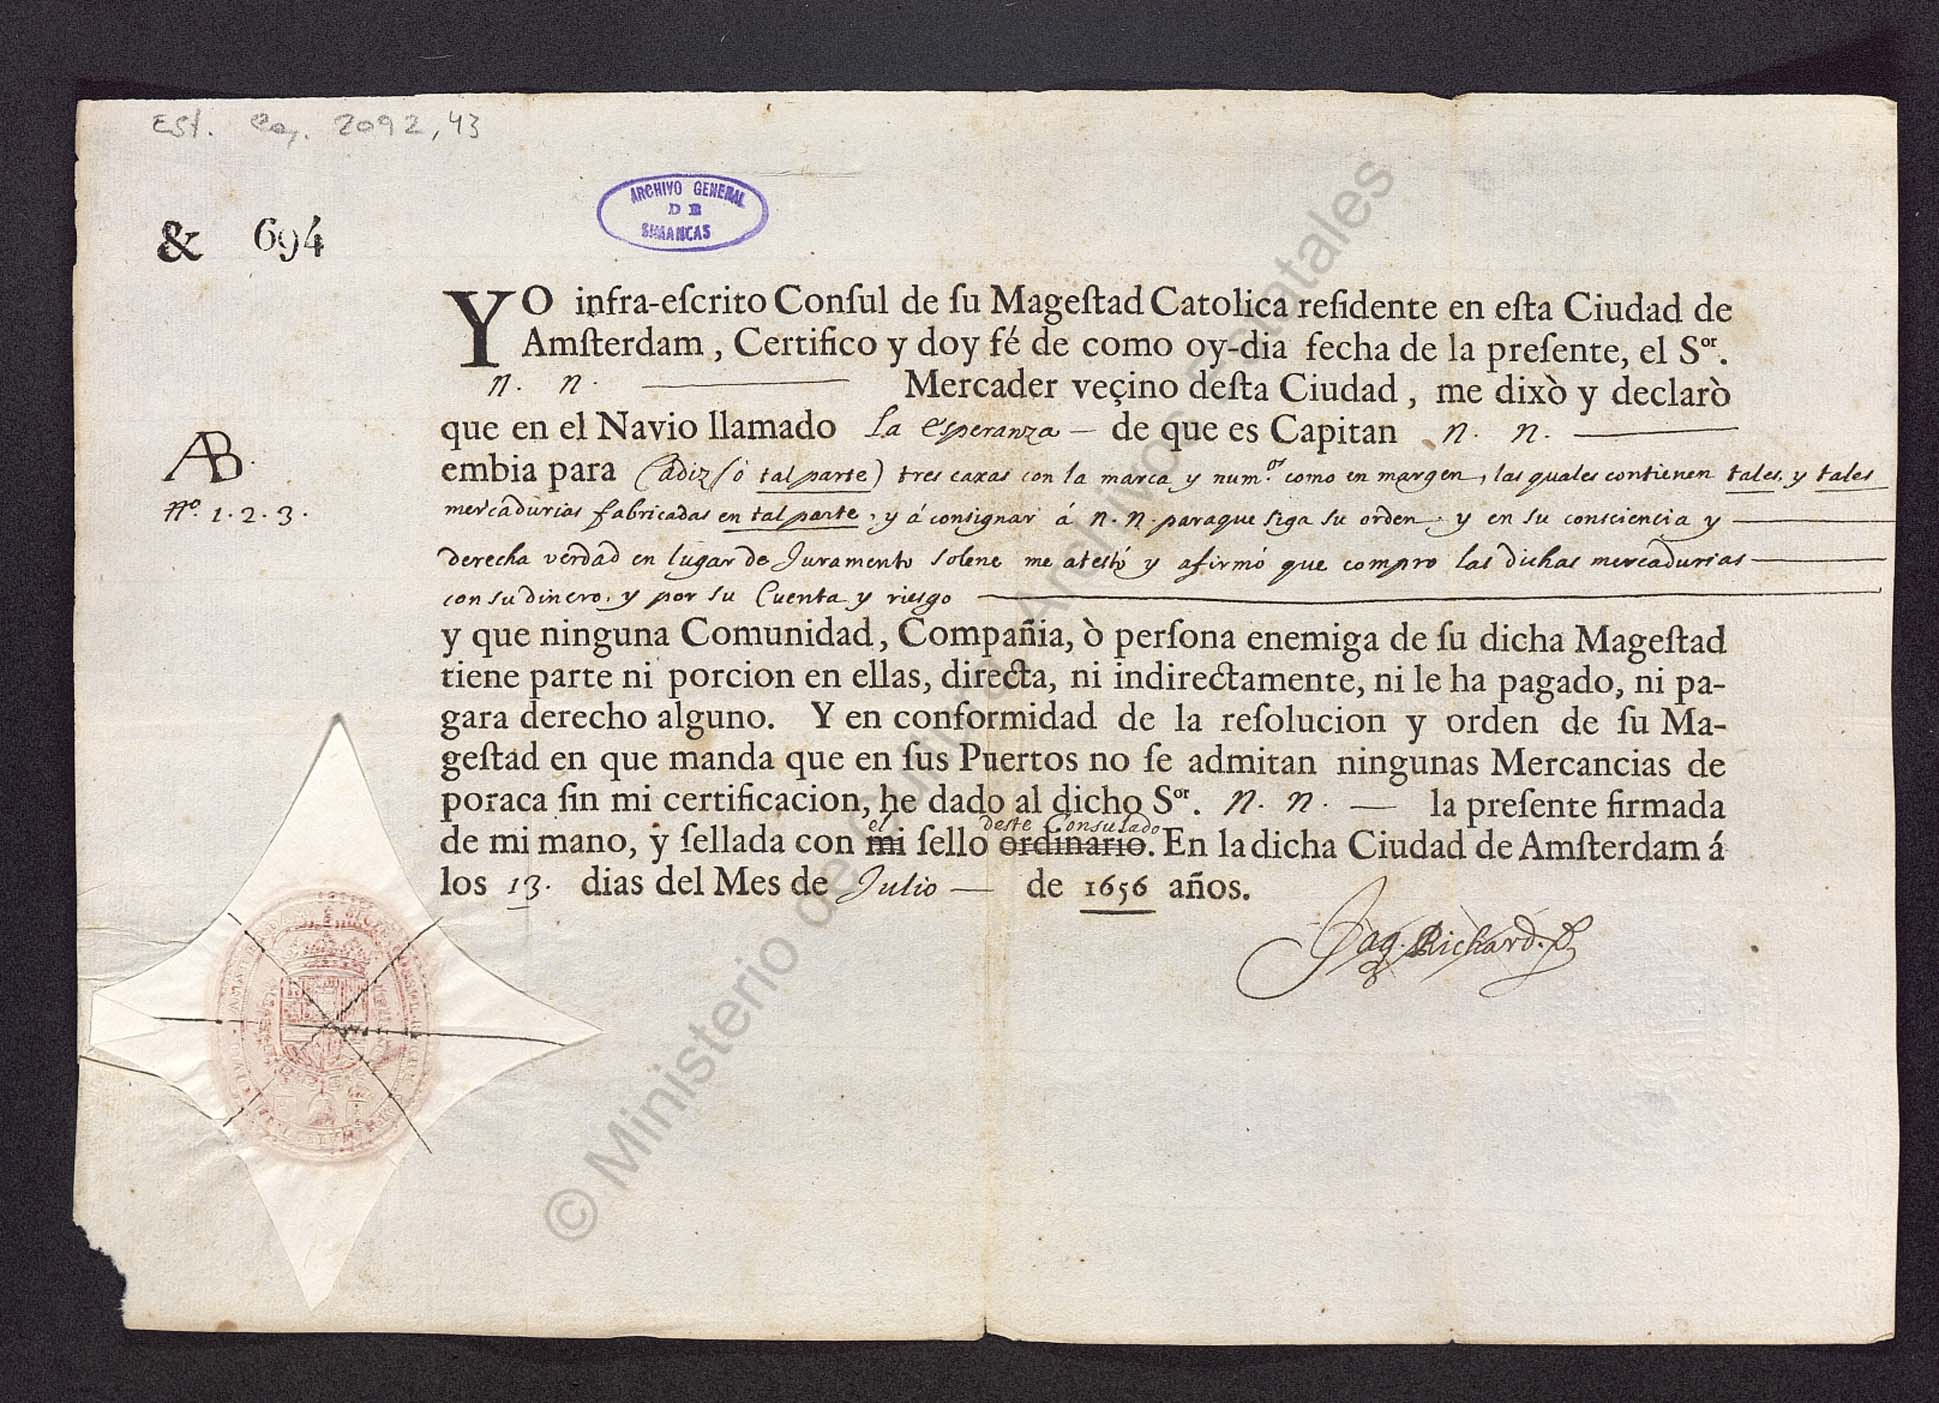 Est. Leg. 2092, 43
ARCHIVO GENERAL
DE
SIMANCAS
& 694
YO infra-eſcrito Conſul de ſu Mageſtad Catolica reſidente en eſta Ciudad de
Amſterdam, Certifico y doy fé de como oy-dia fecha de la preſente, el Sor.
n. n. Mercader veçino deſta Ciudad, me dixò y declarò
que en el Navio llamado La Esperanza de que es Capitan n. n.
embia para Cadiz (ò tal parte) tres caxas con la marca y num.os como en margen, las quales contienen tales, y tales
AB.
No. 1. 2. 3.
mercadurias fabricadas en tal parte, y á consignar á N. N. paraque siga su orden, y en su consciencia y
derecha verdad en lugar de Juramento solene me atestó y afirmó que compro las dichas mercadurias
con su dinero, y por su Cuenta y riesgo
y que ninguna Comunidad, Compañia, ò perſona enemiga de ſu dicha Mageſtad
tiene parte ni porcion en ellas, directa, ni indirectamente, ni le ha pagado, ni pa-
gara derecho alguno. Y en conformidad de la reſolucion y orden de ſu Ma-
geſtad en que manda que en ſus Puertos no ſe admitan ningunas Mercancias de
poraca ſin mi certificacion, he dado al dicho Sor. N. N. la preſente firmada
el deste Consulado
de mi mano, y ſellada con mi ſello ordinario. En la dicha Ciudad de Amſterdam á
los 13. dias del Mes de Julio de 1656 años.
Jaq. Richard.
© Ministerio de Cultura - Archivos Estatales